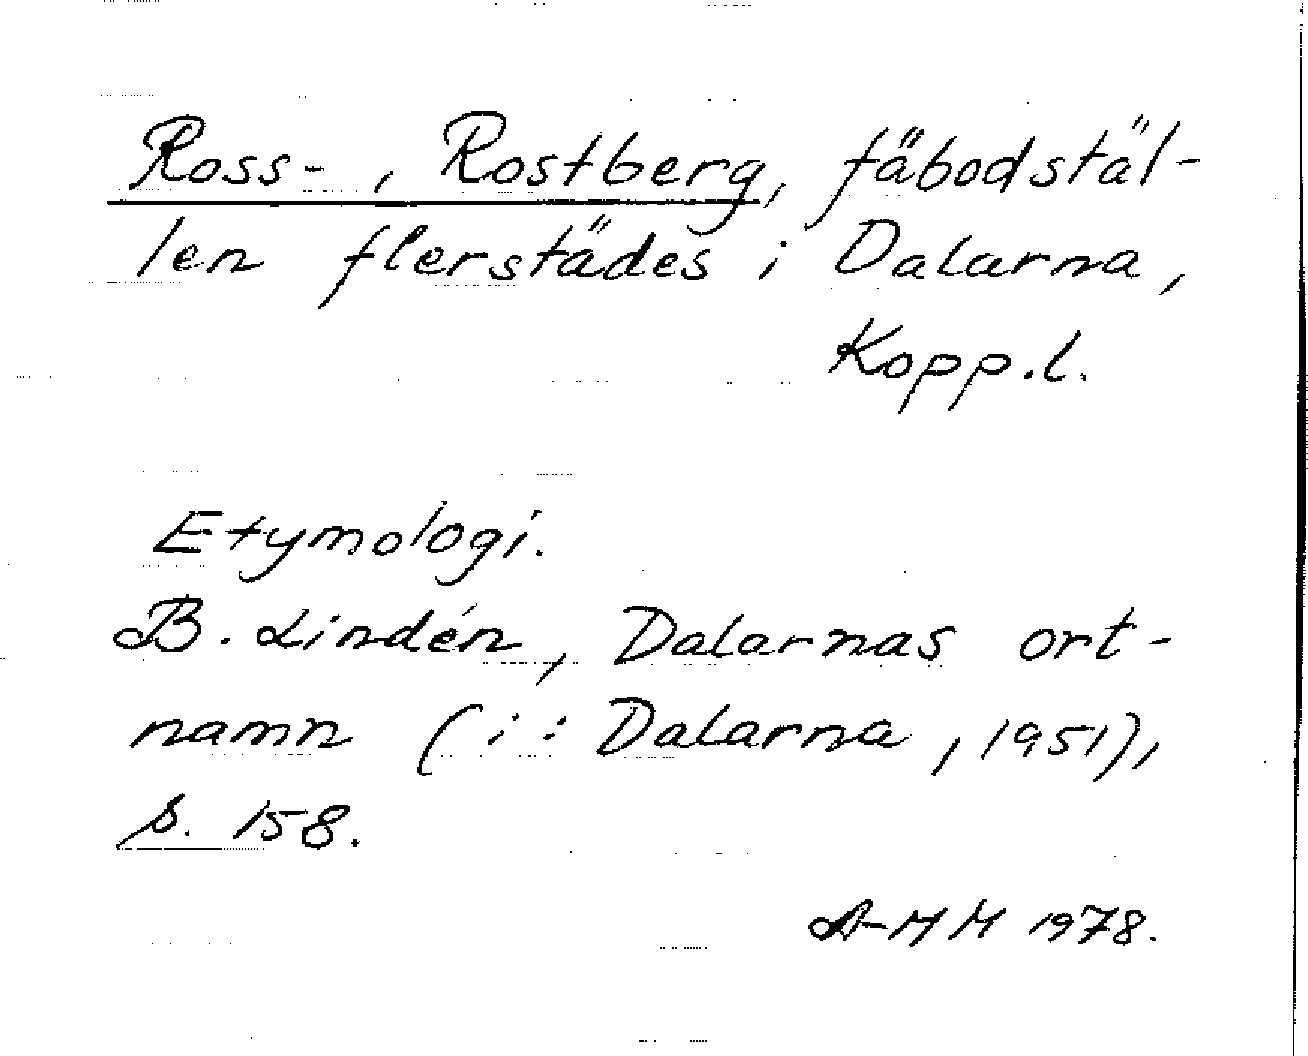 Ross- , Rostberg, fäbodstäl-
len flerstädes i Dalarna,
Kopp.l.
Etymologi.
B. Lindén, Dalarnas ort-
namn (i: Dalarna, 1951),
s. 158.
A-MM 1978.